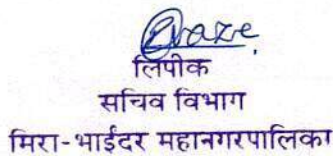 लिपीक
सचिव विभाग
मिरा-भाईंदर महानगरपालिका